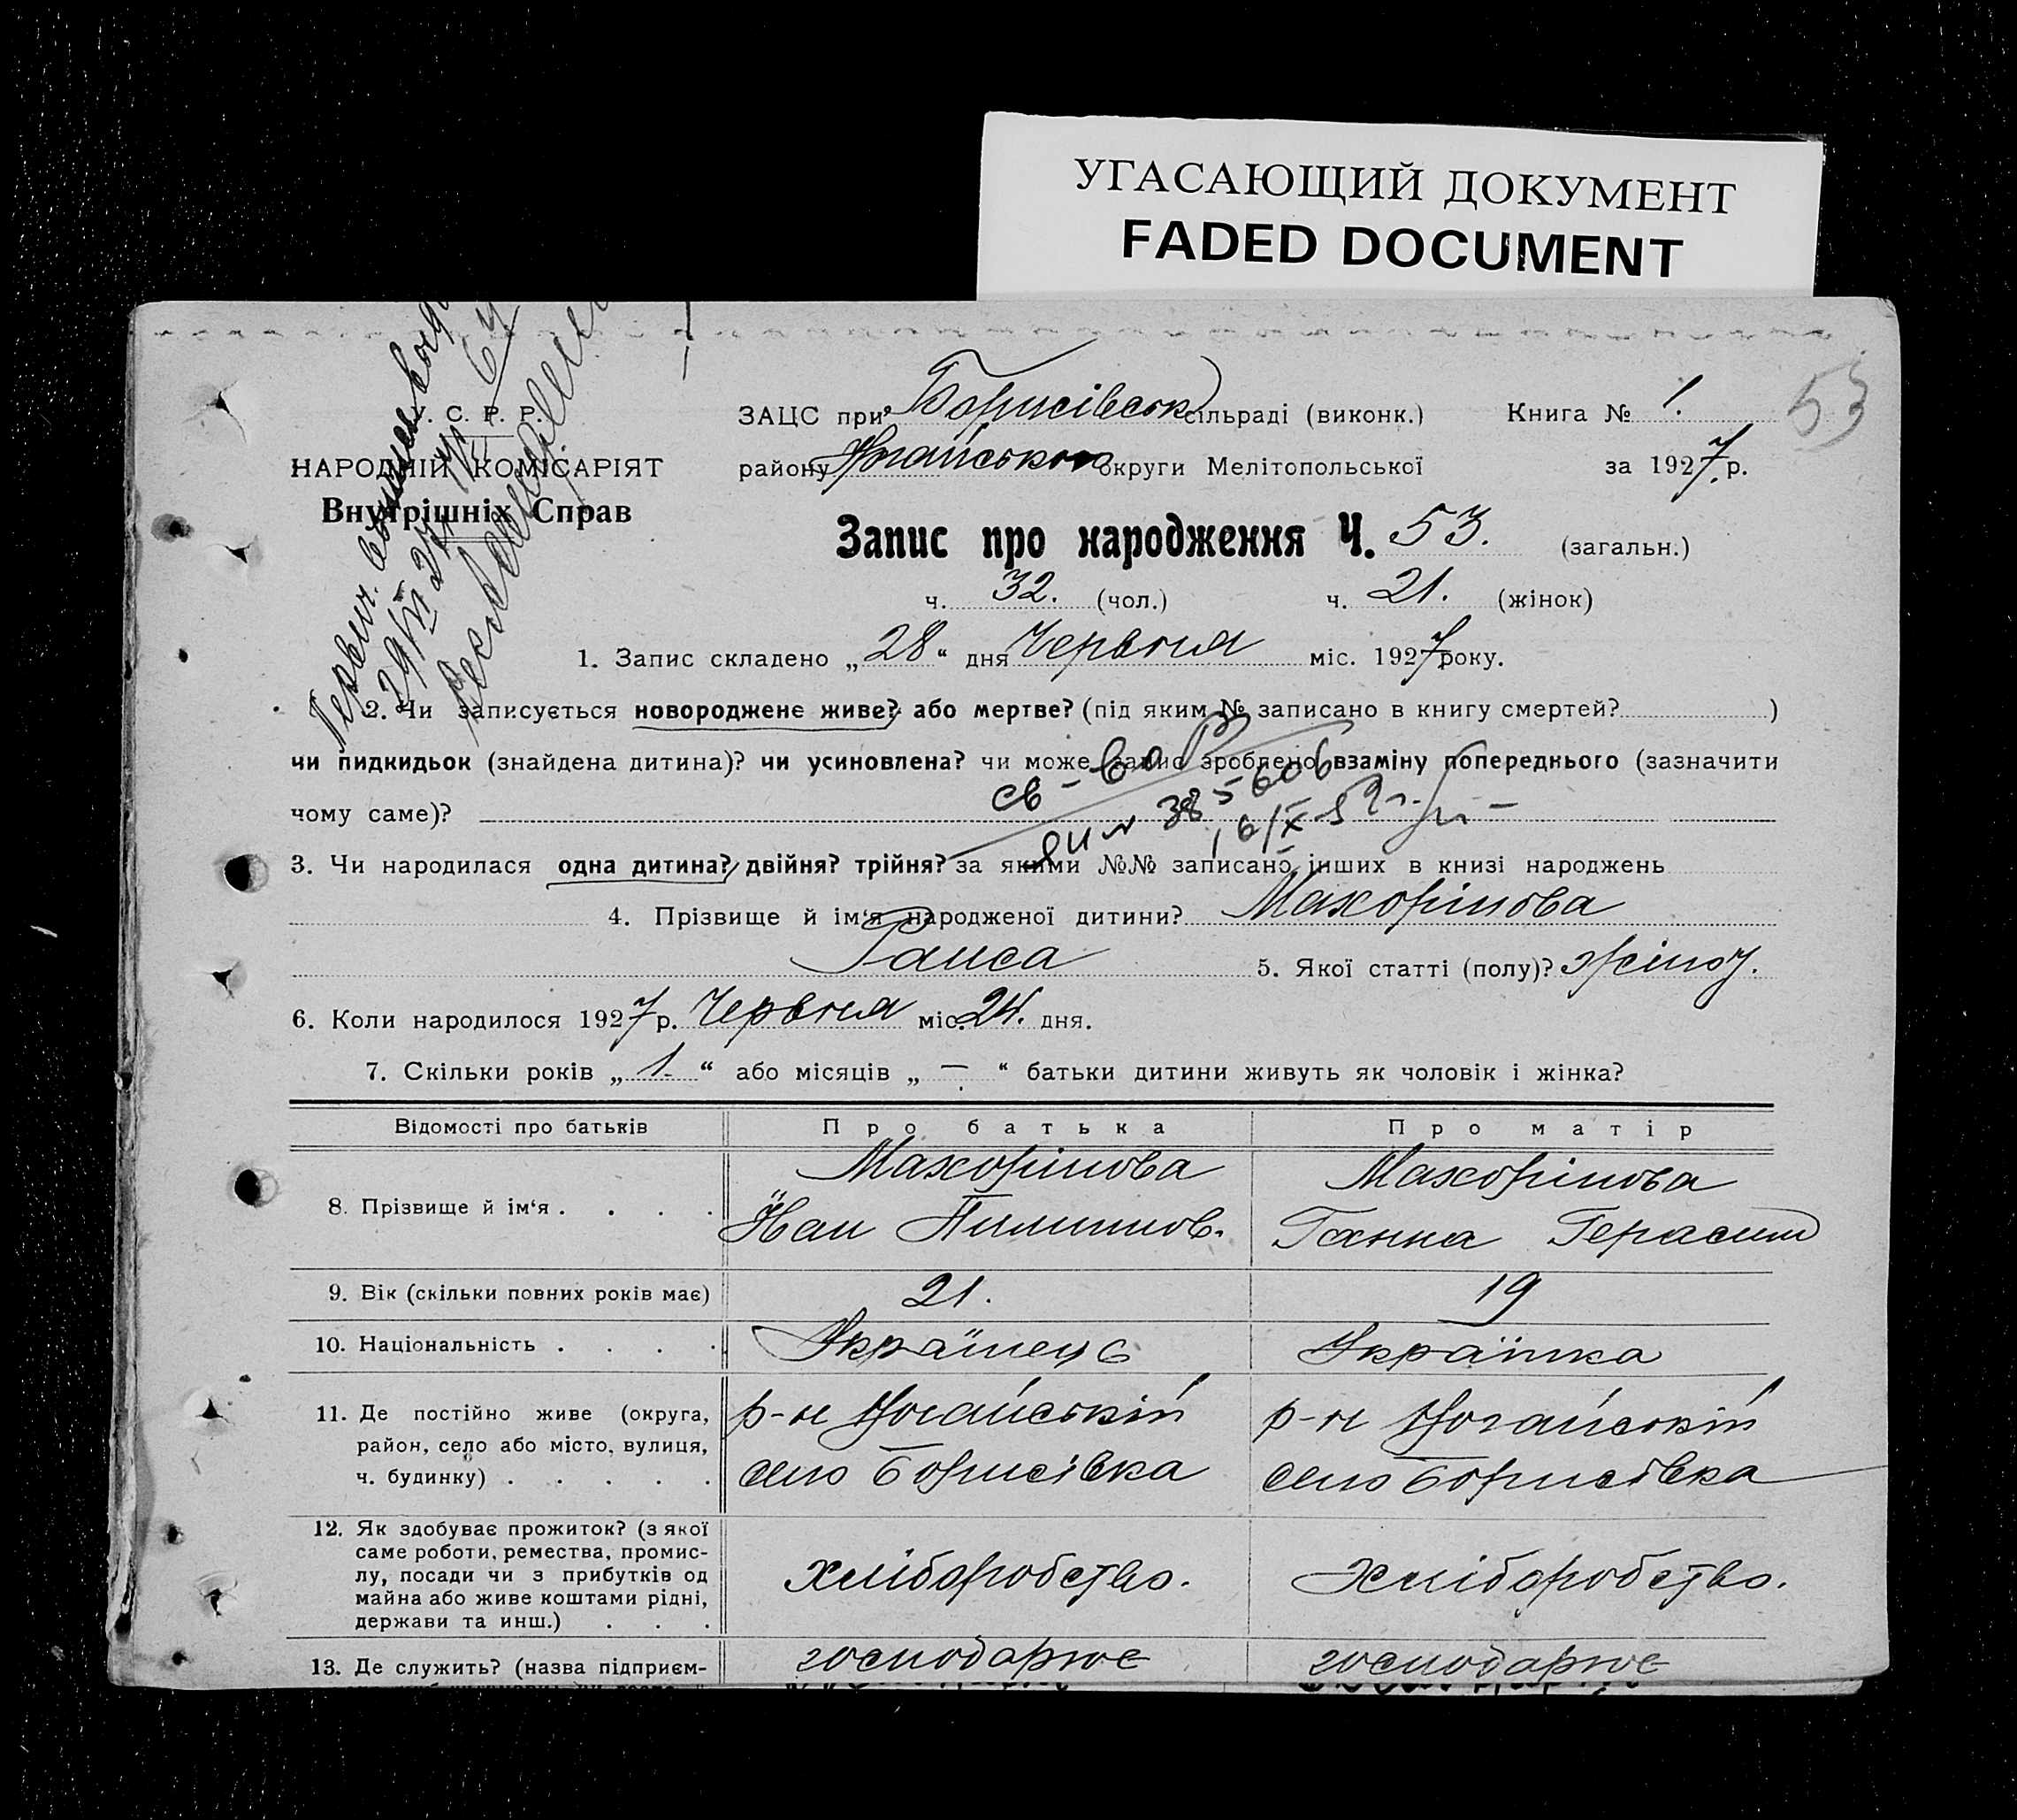 УГАСАЮЩИЙ ДОКУМЕНТ
FADED DOCUMENT
53
У. С. Р. Р.
НАРОДНІЙ КОМІСАРІЯТ
Внутрішніх Справ
ЗАЦС при Борисівськ сільраді (виконк.) Книга № 1.
району Ногайського округи Мелітопольської за 1927 р.
Запис про народження Ч. 53. (загальн.)
ч. 32. (чол.) ч. 21. (жінок)
1. Запис складено „28“ дня Червня міс. 1927 року.
2. Чи записується новороджене живе? або мертве? (під яким № записано в книгу смертей? )
чи пидкидьок (знайдена дитина)? чи усиновлена? чи може запис зроблено взаміну попереднього (зазначити
чому саме)?
св-во
385606
3. Чи народилася одна дитина? двійня? трійня? за якими №№ записано інших в книзі народжень
4. Прізвище й ім‘я народженої дитини? Махорінова
Раиса 5. Якої статті (полу)? жіноч.
6. Коли народилося 1927 р. Червня міс. 24. дня.
7. Скільки років „1.“ або місяців „—“ батьки дитини живуть як чоловік і жінка?
Відомості про батьків Про батька Про матір
8. Прізвище й ім‘я . . . . Махорінова Махорінова
Іван Пилипов. Ганна Герасим
9. Вік (скільки повних років має) 21. 19
10. Національність . . . . Українець Українка
11. Де постійно живе (округа, р-н Ногайській р-н Ногайській
район, село або місто, вулиця,
ч. будинку) . . . . . село Борисівка село Борисівка
12. Як здобуває прожиток? (з якої
саме роботи, ремества, промис-
лу, посади чи з прибутків од хліборобство. хліборобство.
майна або живе коштами рідні,
держави та инш.) . . .
13. Де служить? (назва підприєм- господарює господарює